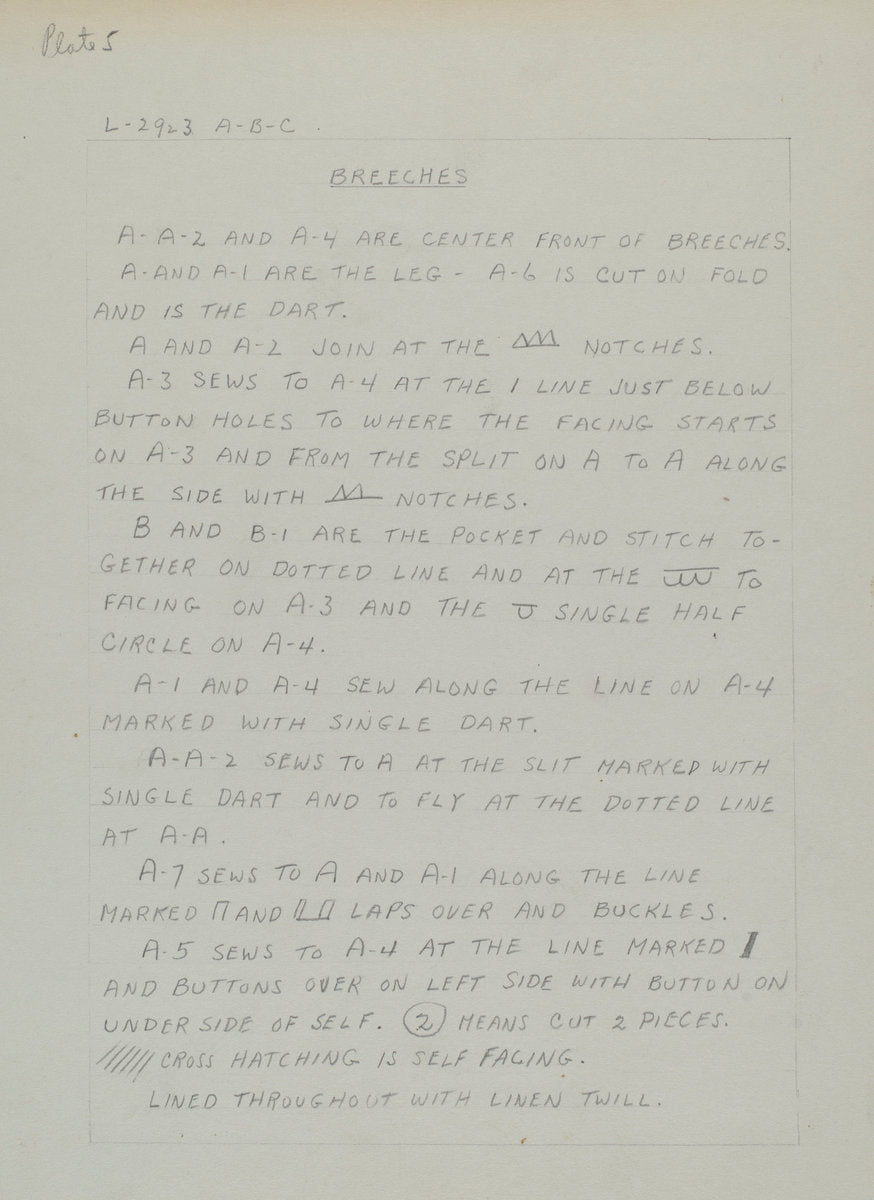 Plate 5
L-2923 A-B-C
BREECHES
A-A-2 AND A-4 ARE CENTER FRONT OF BREECHES.
A-AND A-1 ARE THE LEG - A-6 IS CUT ON FOLD
AND IS THE DART.
A AND A-2 JOIN AT THE NOTCHES.
A-3 SEWS TO A-4 AT THE 1 LINE JUST BELOW
BUTTON HOLES TO WHERE THE FACING STARTS
ON A-3 AND FROM THE SPLIT ON A TO A ALONG
THE SIDE WITH NOTCHES.
B AND B-1 ARE THE POCKET AND STITCH TO-
GETHER ON DOTTED LINE AND AT THE TO
FACING ON A-3 AND THE SINGLE HALF
CIRCLE ON A-4.
A-1 AND A-4 SEW ALONG THE LINE ON A-4
MARKED WITH SINGLE DART.
A-A-2 SEWS TO A AT THE SLIT MARKED WITH
SINGLE DART AND TO FLY AT THE DOTTED LINE
AT A-A.
A-7 SEWS TO A AND A-1 ALONG THE LINE
MARKED AND LAPS OVER AND BUCKLES.
A-5 SEWS TO A-4 AT THE LINE MARKED
AND BUTTONS OVER ON LEFT SIDE WITH BUTTON ON
UNDER SIDE OF SELF. (2) MEANS CUT 2 PIECES.
CROSS HATCHING IS SELF FACING.
LINED THROUGHOUT WITH LINEN TWILL.